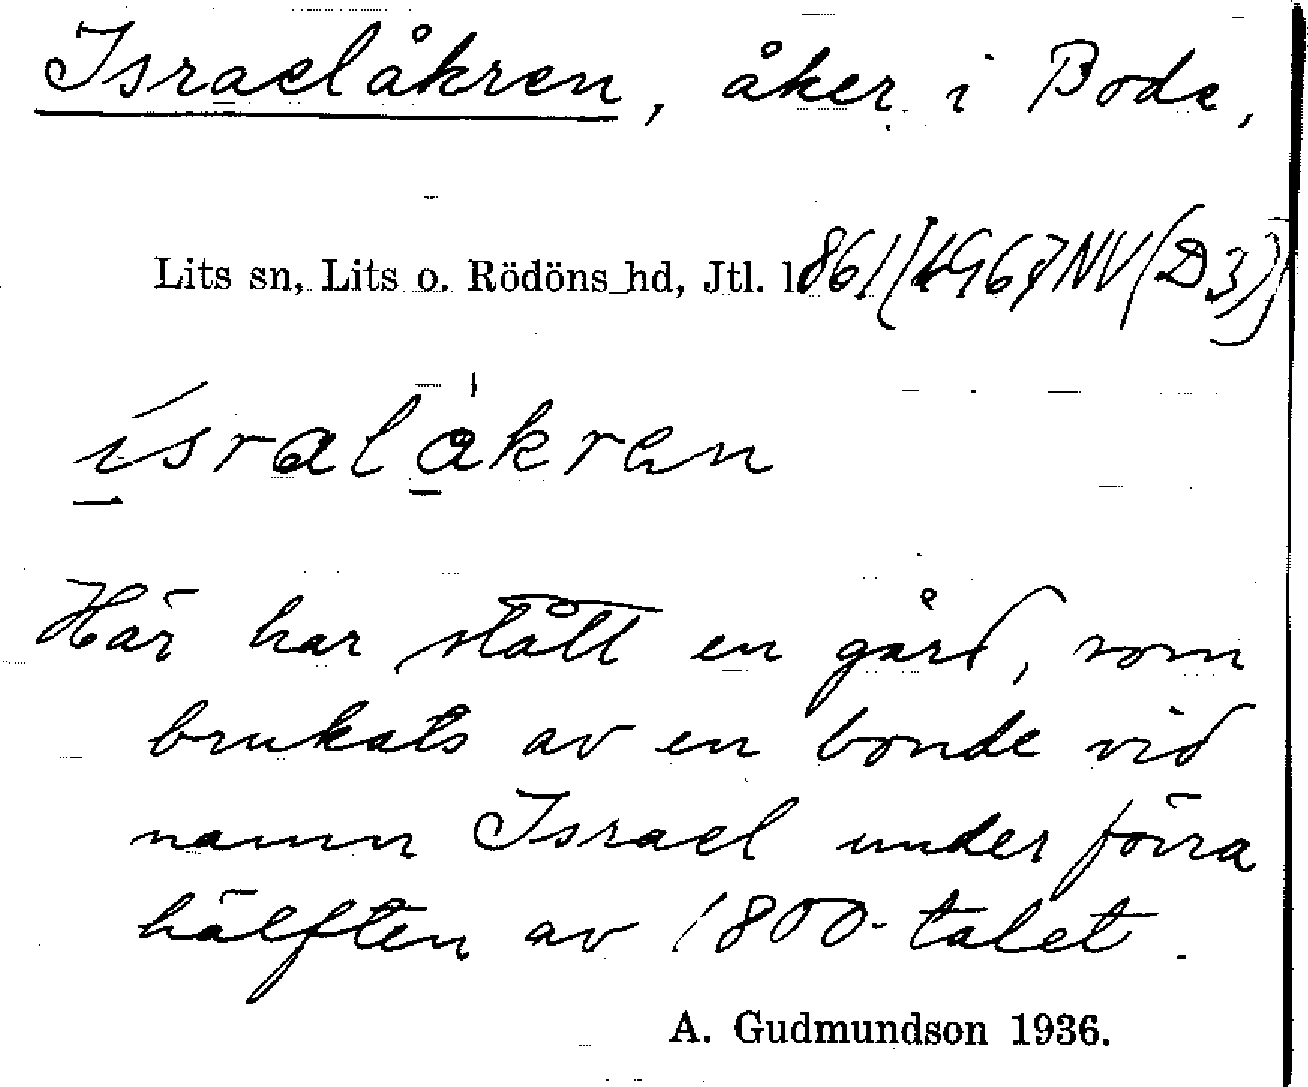 Israelåkren, åker i Bode,
Lits sn, Lits o. Rödöns hd, Jtl. l.
ísralåkren
Här har stått en gård, som
brukats av en bonde vid
namn Israel under förra
hälften av 1800-talet.
A. Gudmundson 1936.